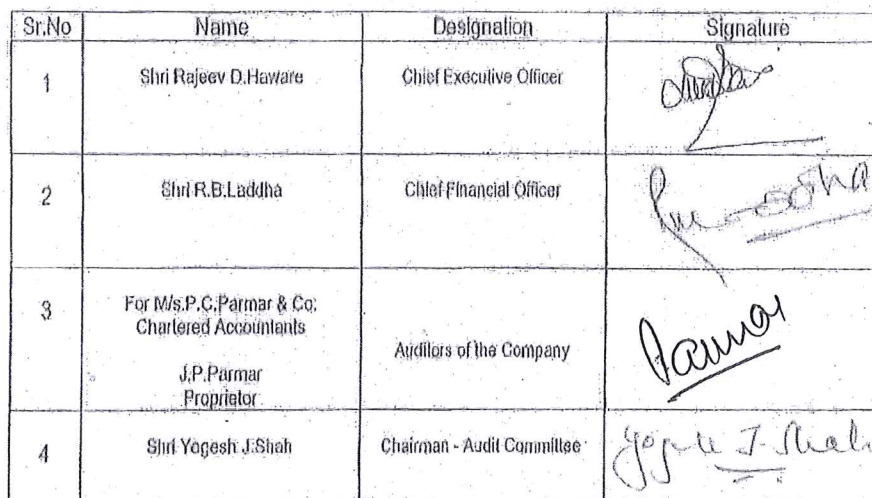 Sr.No Name Designation Signature
1 Shri Rajeev D.Haware Chief Executive Officer
2 Shri R.B.Laddha Chief Financial Officer
3 For M/s.P.C.Parmar & Co.
Chartered Accountants
Auditors of the Company
Parmar
J.P.Parmar
Proprietor
4 Shri Yogesh J.Shah Chairman - Audit Committee Yogesh J. Shah